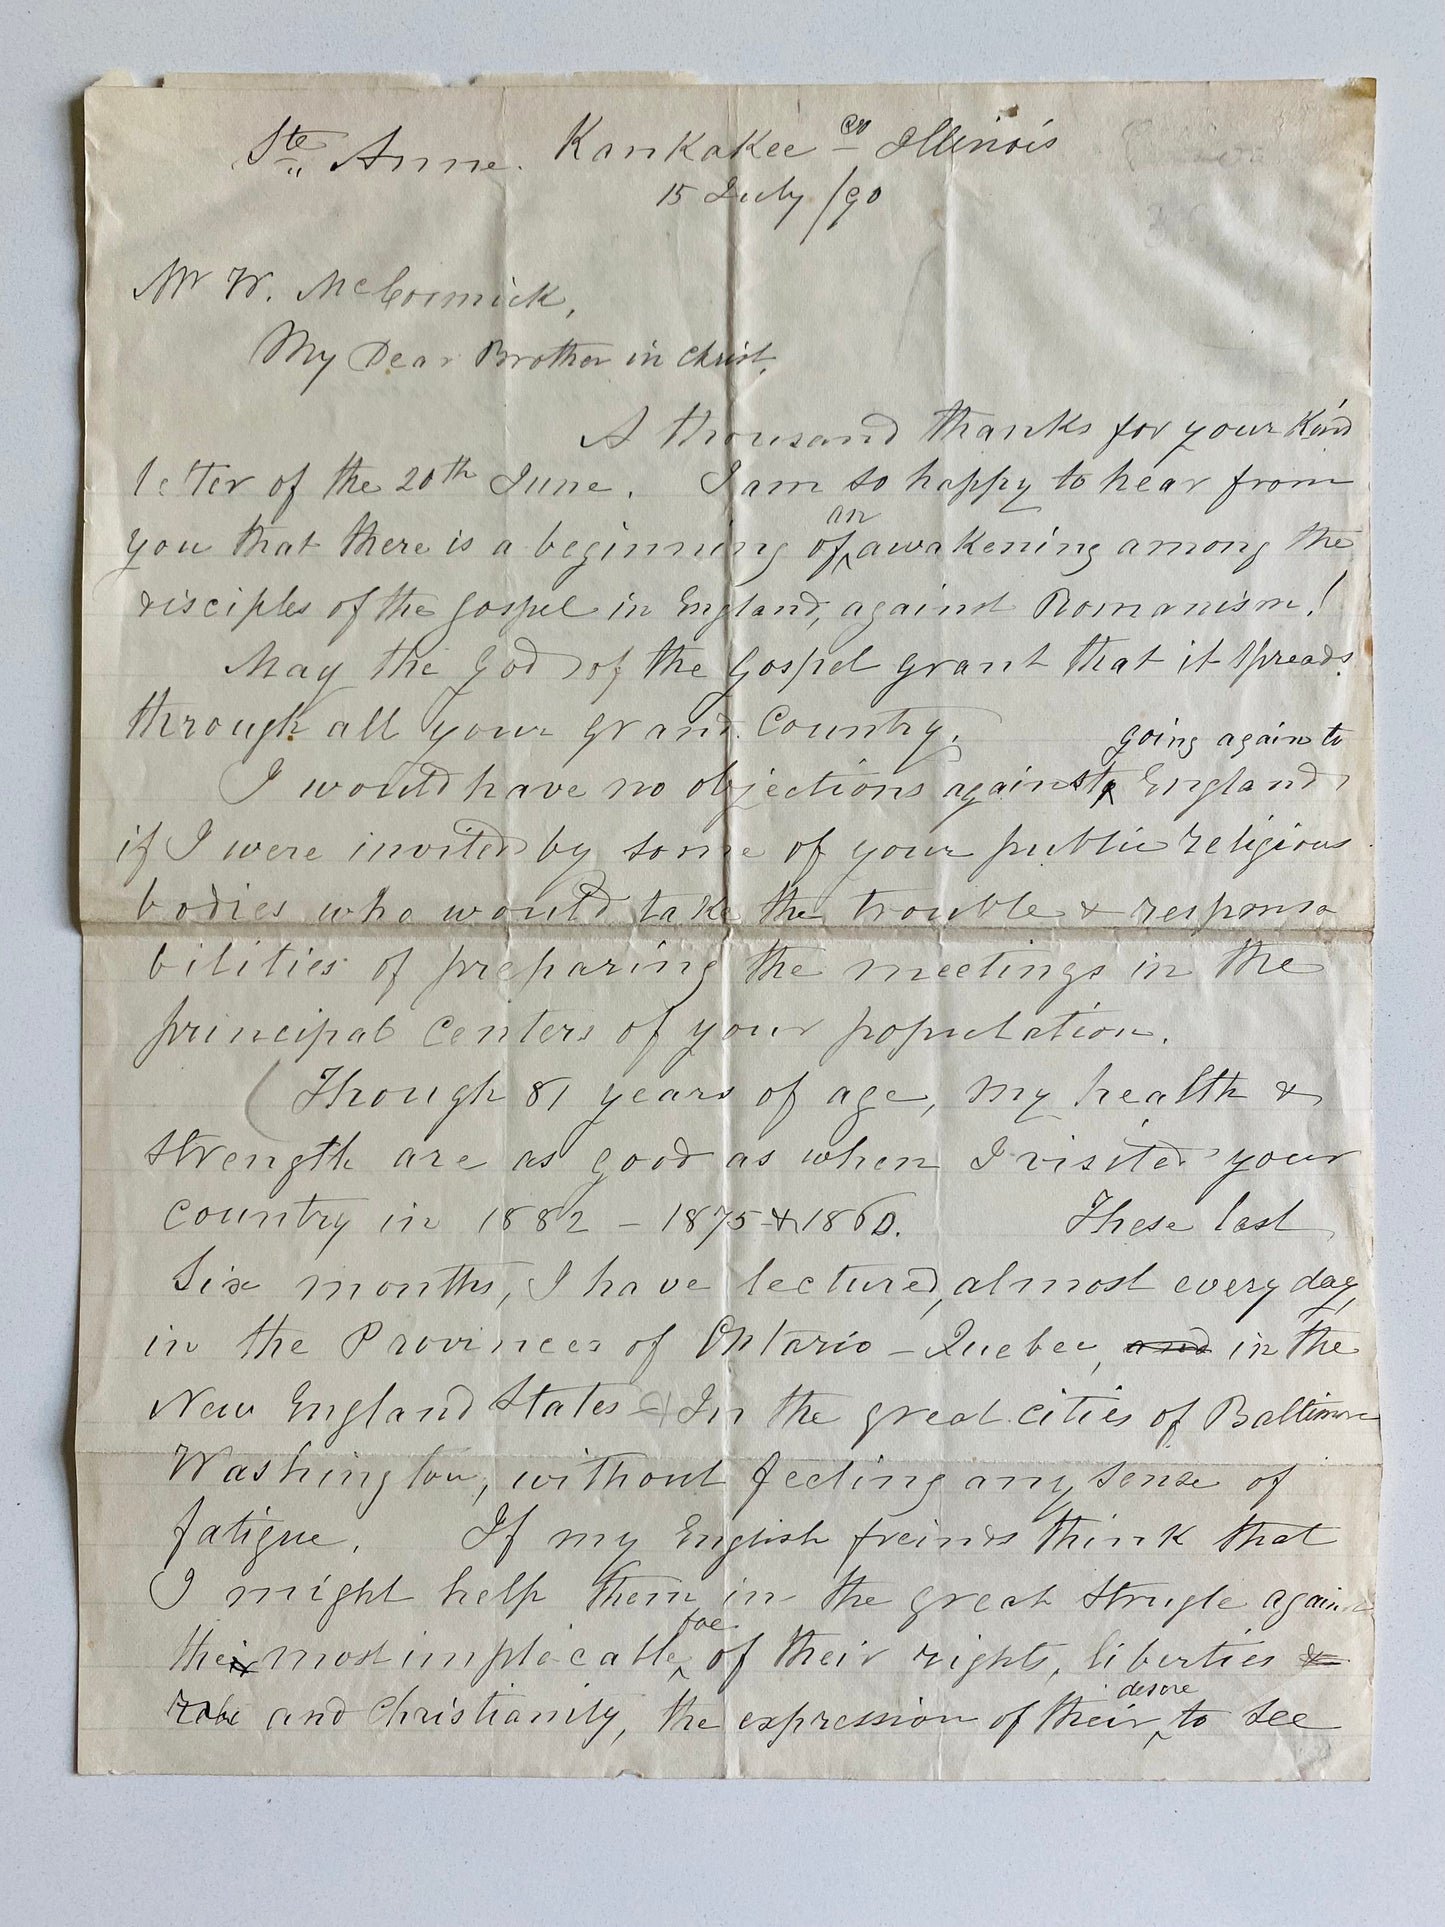 Ste Anne. Kankakee Co Illinois
15 July /90
Mr W. McCormick,
My Dear Brother in Christ,
A thousand thanks for your kind
letter of the 20th June. I am so happy to hear from
you that there is a beginning of an awakening among the
disciples of the gospel in England, against Romanism!
May the God of the Gospel grant that it spreads
through all your grand Country.
I would have no objections against going again to England,
if I were invited by some of your public religious
bodies who would take the trouble & responsa
bilities of preparing the meetings in the
principal centers of your population.
Though 81 years of age, my health &
strength are as good as when I visited your
country in 1882 - 1875 & 1860. These last
six months, I have lectured, almost every day,
in the Provinces of Ontario - Quebec, and in the
New England States & In the great cities of Baltimore
Washington, without feeling any sense of
fatigue. If my English freinds think that
I might help them in the great strugle against
their most implacable foe of their rights, liberties &
and Christianity, the expression of their desire to see